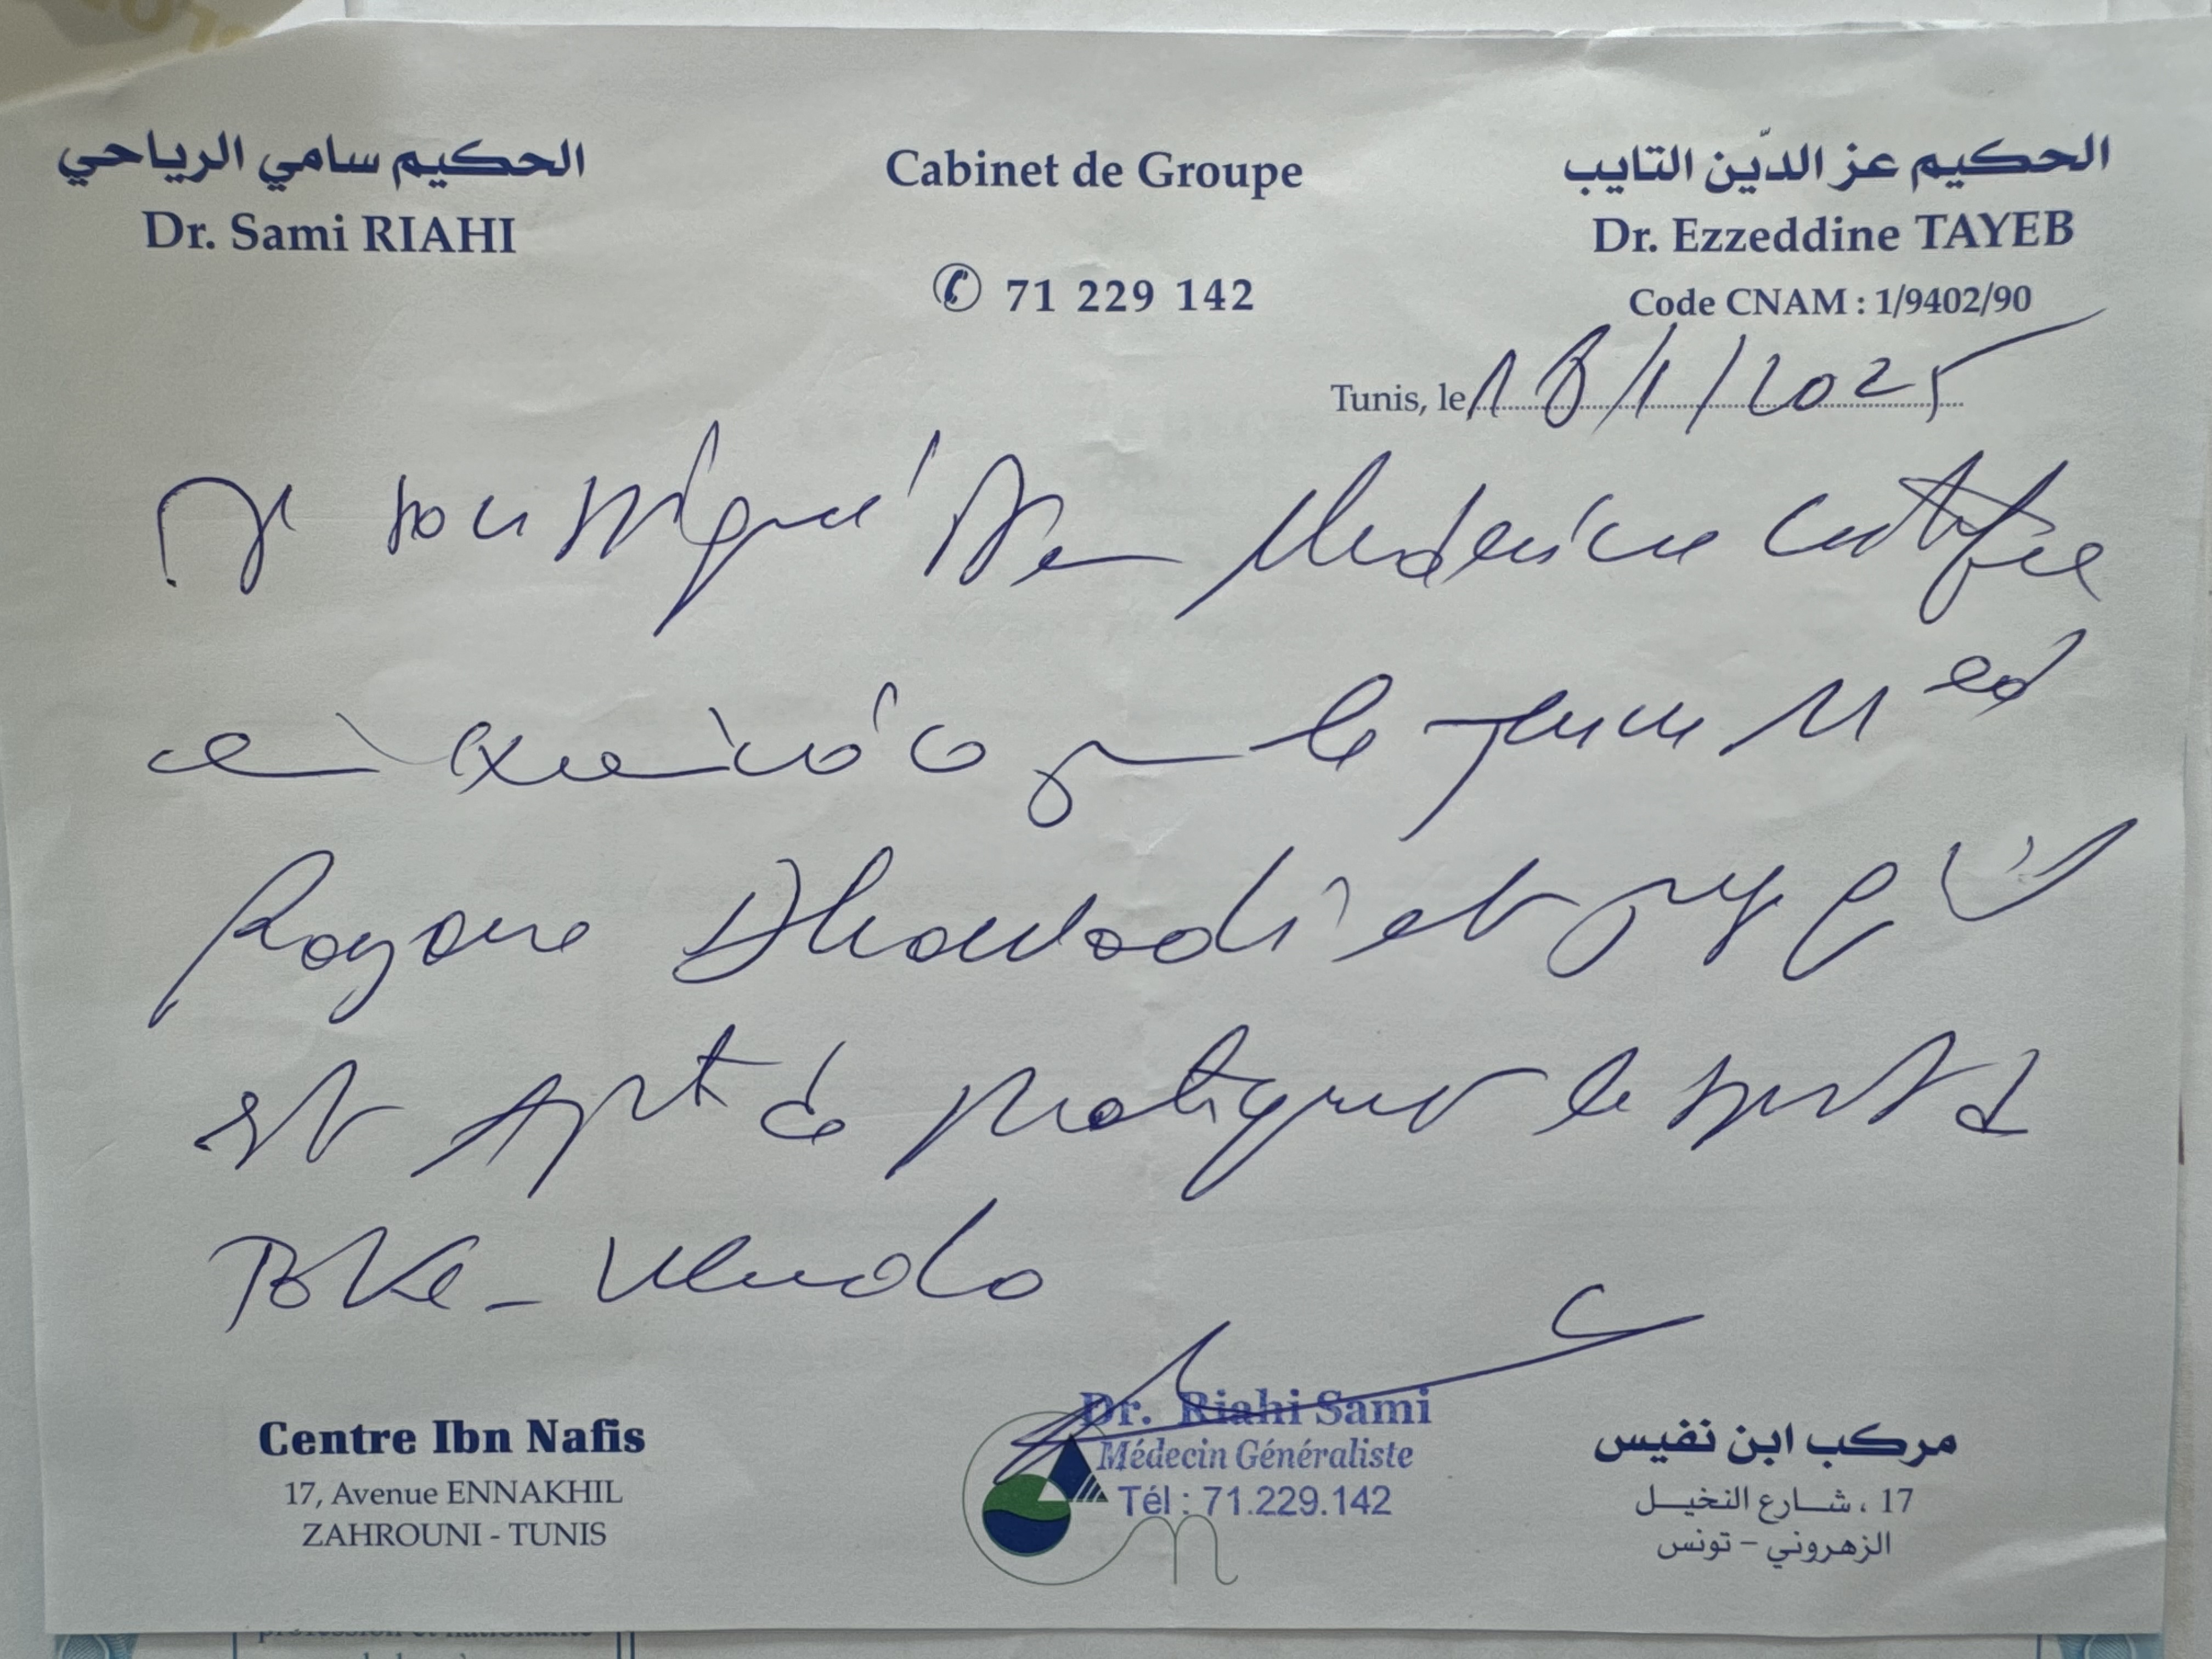 الحكيم سامي الرياحي
Dr. Sami RIAHI
Cabinet de Groupe
71 229 142
الحكيم عز الدّين التايب
Dr. Ezzeddine TAYEB
Code CNAM : 1/9402/90
Tunis, le 18/1/2025
Je soussigné Dr en Médecine certifie
avoir examiné ce jour le jeune Med
Rayane Dhaouadi et
est apte à pratiquer le sport
Dr. Riahi Sami
Médecin Généraliste
Tél : 71.229.142
Centre Ibn Nafis
17, Avenue ENNAKHIL
ZAHROUNI - TUNIS
مركب ابن نفيس
17 ، شارع النخيل
الزهروني - تونس